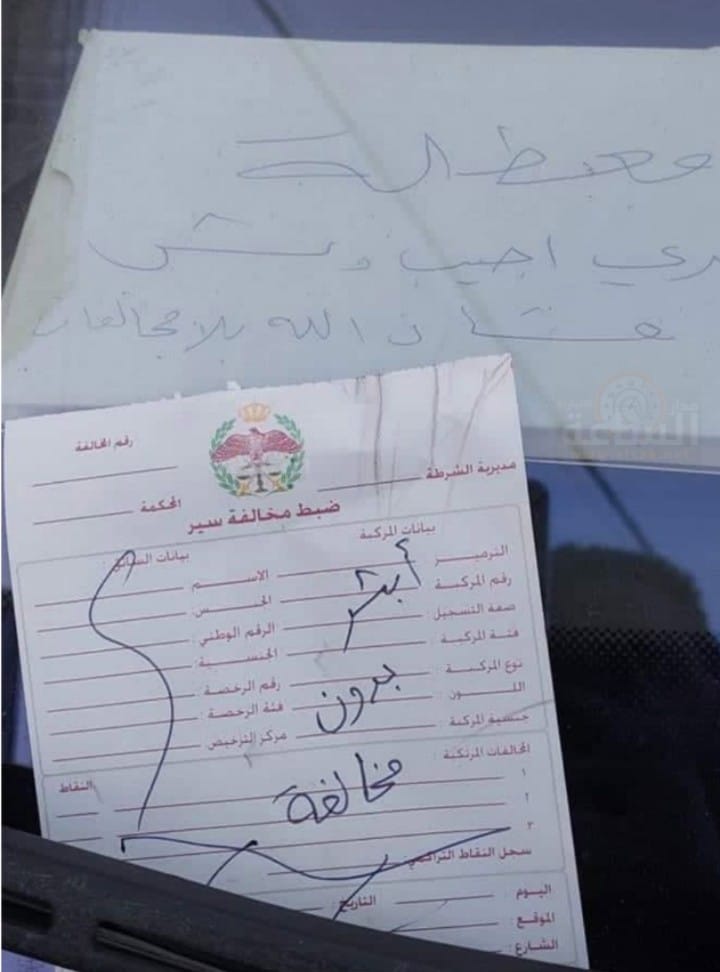 معطلة
اجيب ونش
عشان الله بلا مخالفات
رقم المخالفة
مديرية الشرطة
المحكمة
ضبط مخالفة سير
بيانات المركبة
بيانات السائق :
الترميز :
الاسم :
رقم المركبة :
الجنس :
صفة التسجيل :
الرقم الوطني :
فئة المركبة :
الجنسية :
نوع المركبة :
رقم الرخصة :
اللون :
فئة الرخصة :
جنسية المركبة :
مركز الترخيص :
أبشر
بدون
مخالفة
المخالفات المرتكبة :
النقاط
١
٢
٣
سجل النقاط التراكمي
اليوم :
التاريخ :
الموقع :
الشارع :